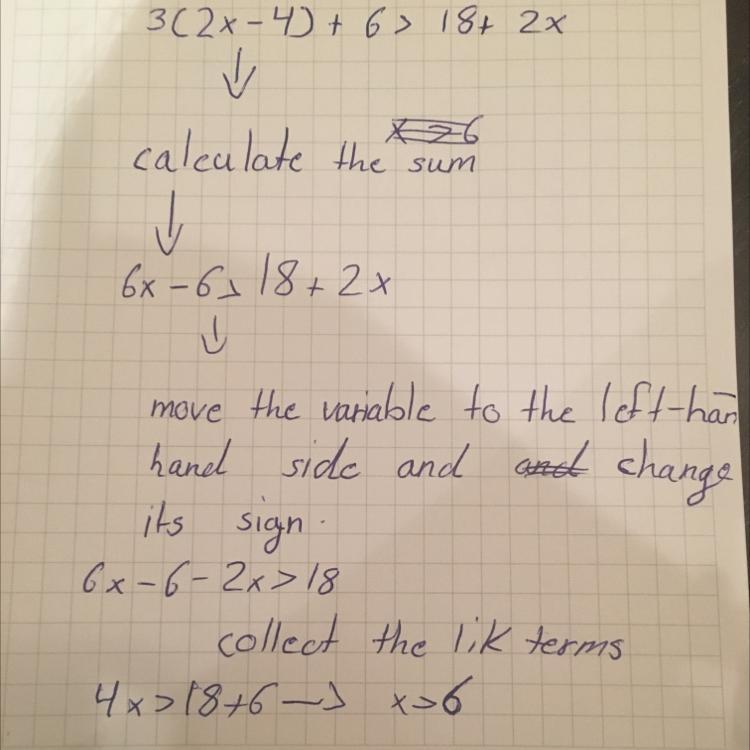 3(2x-4) + 6 > 18 + 2x
x > 6
calculate the sum
6x - 6 > 18 + 2x
move the variable to the left-han
hand side and and change
its sign.
6x - 6 - 2x > 18
collect the lik terms
4x > 18 + 6 → x > 6